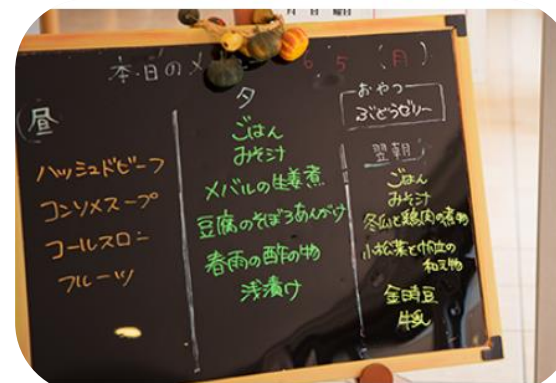 月 日 曜日
本日のメ 6 5 (月)
昼
ハッシュドビーフ
コンソメスープ
コールスロー
フルーツ
夕
ごはん
みそ汁
メバルの生姜煮
豆腐のそぼろあんかけ
春雨の酢の物
浅漬け
おやつ
ぶどうゼリー
翌朝
ごはん
みそ汁
冬瓜と鶏肉の煮物
小松菜と帆立の
和え物
金時豆
牛乳